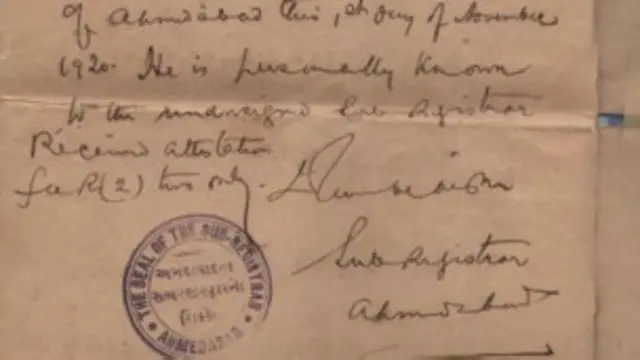 of Ahmedabad this 1st day of November
1920. He is personally known
to the undersigned Sub Registrar
Received attestation
fee R(2) two only.
Sub Registrar
Ahmedabad
THE SEAL OF THE SUB-REGISTRAR
અમદાવાદના
AHMEDABAD